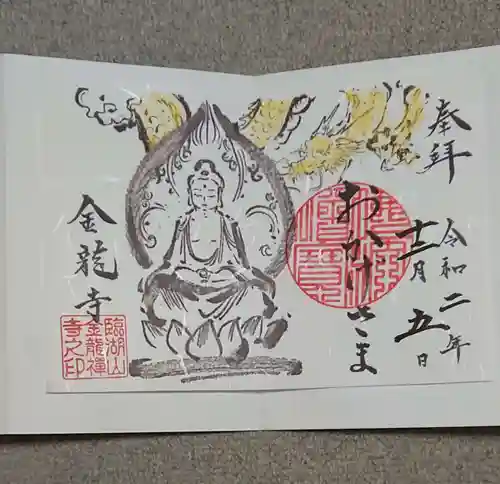 奉拝
令和二年
十二月五日
おかげさま
佛法僧寶
金龍寺
臨湖山
金龍禪
寺之印